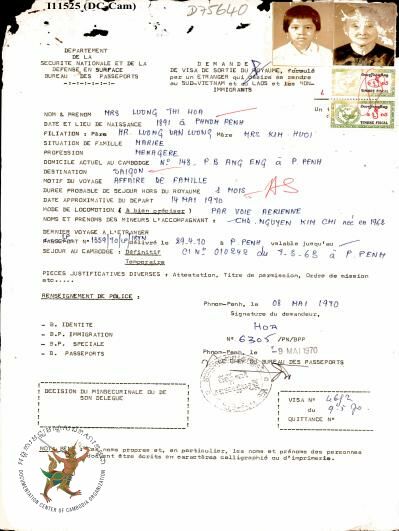 111525 (DC-Cam)
D75640
DEPARTEMENT
DE LA
SECURITE NATIONALE ET DE LA
DEFENSE EN SURFACE
BUREAU DES PASSEPORTS
DEMANDE
DE VISA DE SORTIE DU ROYAUME, formulé
par un ETRANGER qui désire se rendre
au SUD-VIETNAM et au LAOS et les NON-
IMMIGRANTS
TIMBRE FISCAL
NOM & PRENOM MRS LUONG THI HOA
DATE ET LIEU DE NAISSANCE 1891 à PHNOM PENH
FILIATION : Père MR. LUONG VAN LUONG Mère MRS KIM HUOI
SITUATION DE FAMILLE MARIEE
PROFESSION MENAGERE
DOMICILE ACTUEL AU CAMBODGE N° 148. P.B ANG ENG à P.PENH
DESTINATION SAIGON
MOTIF DU VOYAGE AFFAIRE DE FAMILLE
DUREE PROBABLE DE SEJOUR HORS DU ROYAUME 3 MOIS
DATE APPROXIMATIVE DU DEPART 14 MAI 1970
MODE DE LOCOMOTION (à bien préciser) PAR VOIE AERIENNE
NOMS ET PRENOMS DES MINEURS L'ACCOMPAGNANT : CHÁ. NGUYEN KIM CHI née en 1968
DERNIER VOYAGE A L'ETRANGER
PASSEPORT N° délivré le 29.4.70 à P.PENH valable jusqu'au
SEJOUR AU CAMBODGE : Définitif CI N° 010242 du à P PENH
Temporaire
PIECES JUSTIFICATIVES DIVERSES : Attestation, Titre de permission, Ordre de mission
etc.....
RENSEIGNEMENT DE POLICE :
Phnom-Penh, le 08 MAI 1970
Signature du demandeur,
HOA
- B. IDENTITE
- B.P. IMMIGRATION
- B.P. SPECIALE
- B. PASSEPORTS
N° 6305 /PN/BPP
Phnom-Penh, le -9 MAI 1970
LE CHEF DU BUREAU DES PASSEPORTS
DECISION DU MINSECUNALE OU DE
SON DELEGUE
VISA N° 4612
du 9.5.70
QUITTANCE N°
NOTA BENE : Les noms propres et, en particulier, les noms et prénoms des personnes
doivent être écrits en caractères calligraphié ou d'imprimerie.
DOCUMENTATION CENTER OF CAMBODIA ORGANIZATION